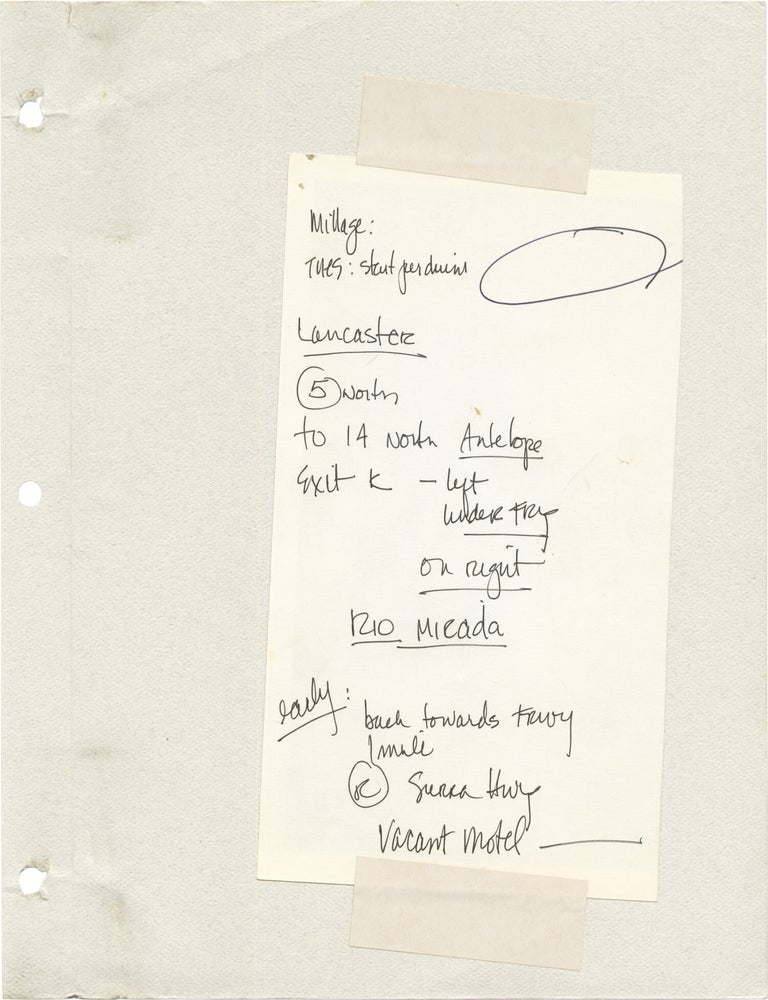 Millage:
TUES: start perdiem
Lancaster
5 North
to 14 North Antelope
Exit K – left
under FRY
on right
RIO Mirada
early:
back towards FRWY
1 mile
R Sierra Hwy
Vacant Motel